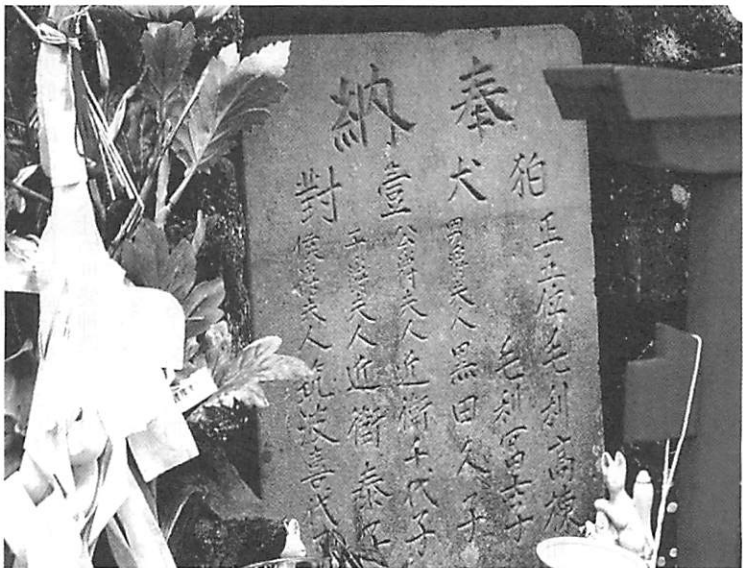 奉納
狛犬壹對
正五位毛利高棟
毛利冨士子
男爵夫人黒田久子
公爵夫人近衛千代子
子爵夫人近衛泰子
侯爵夫人筑波喜代子